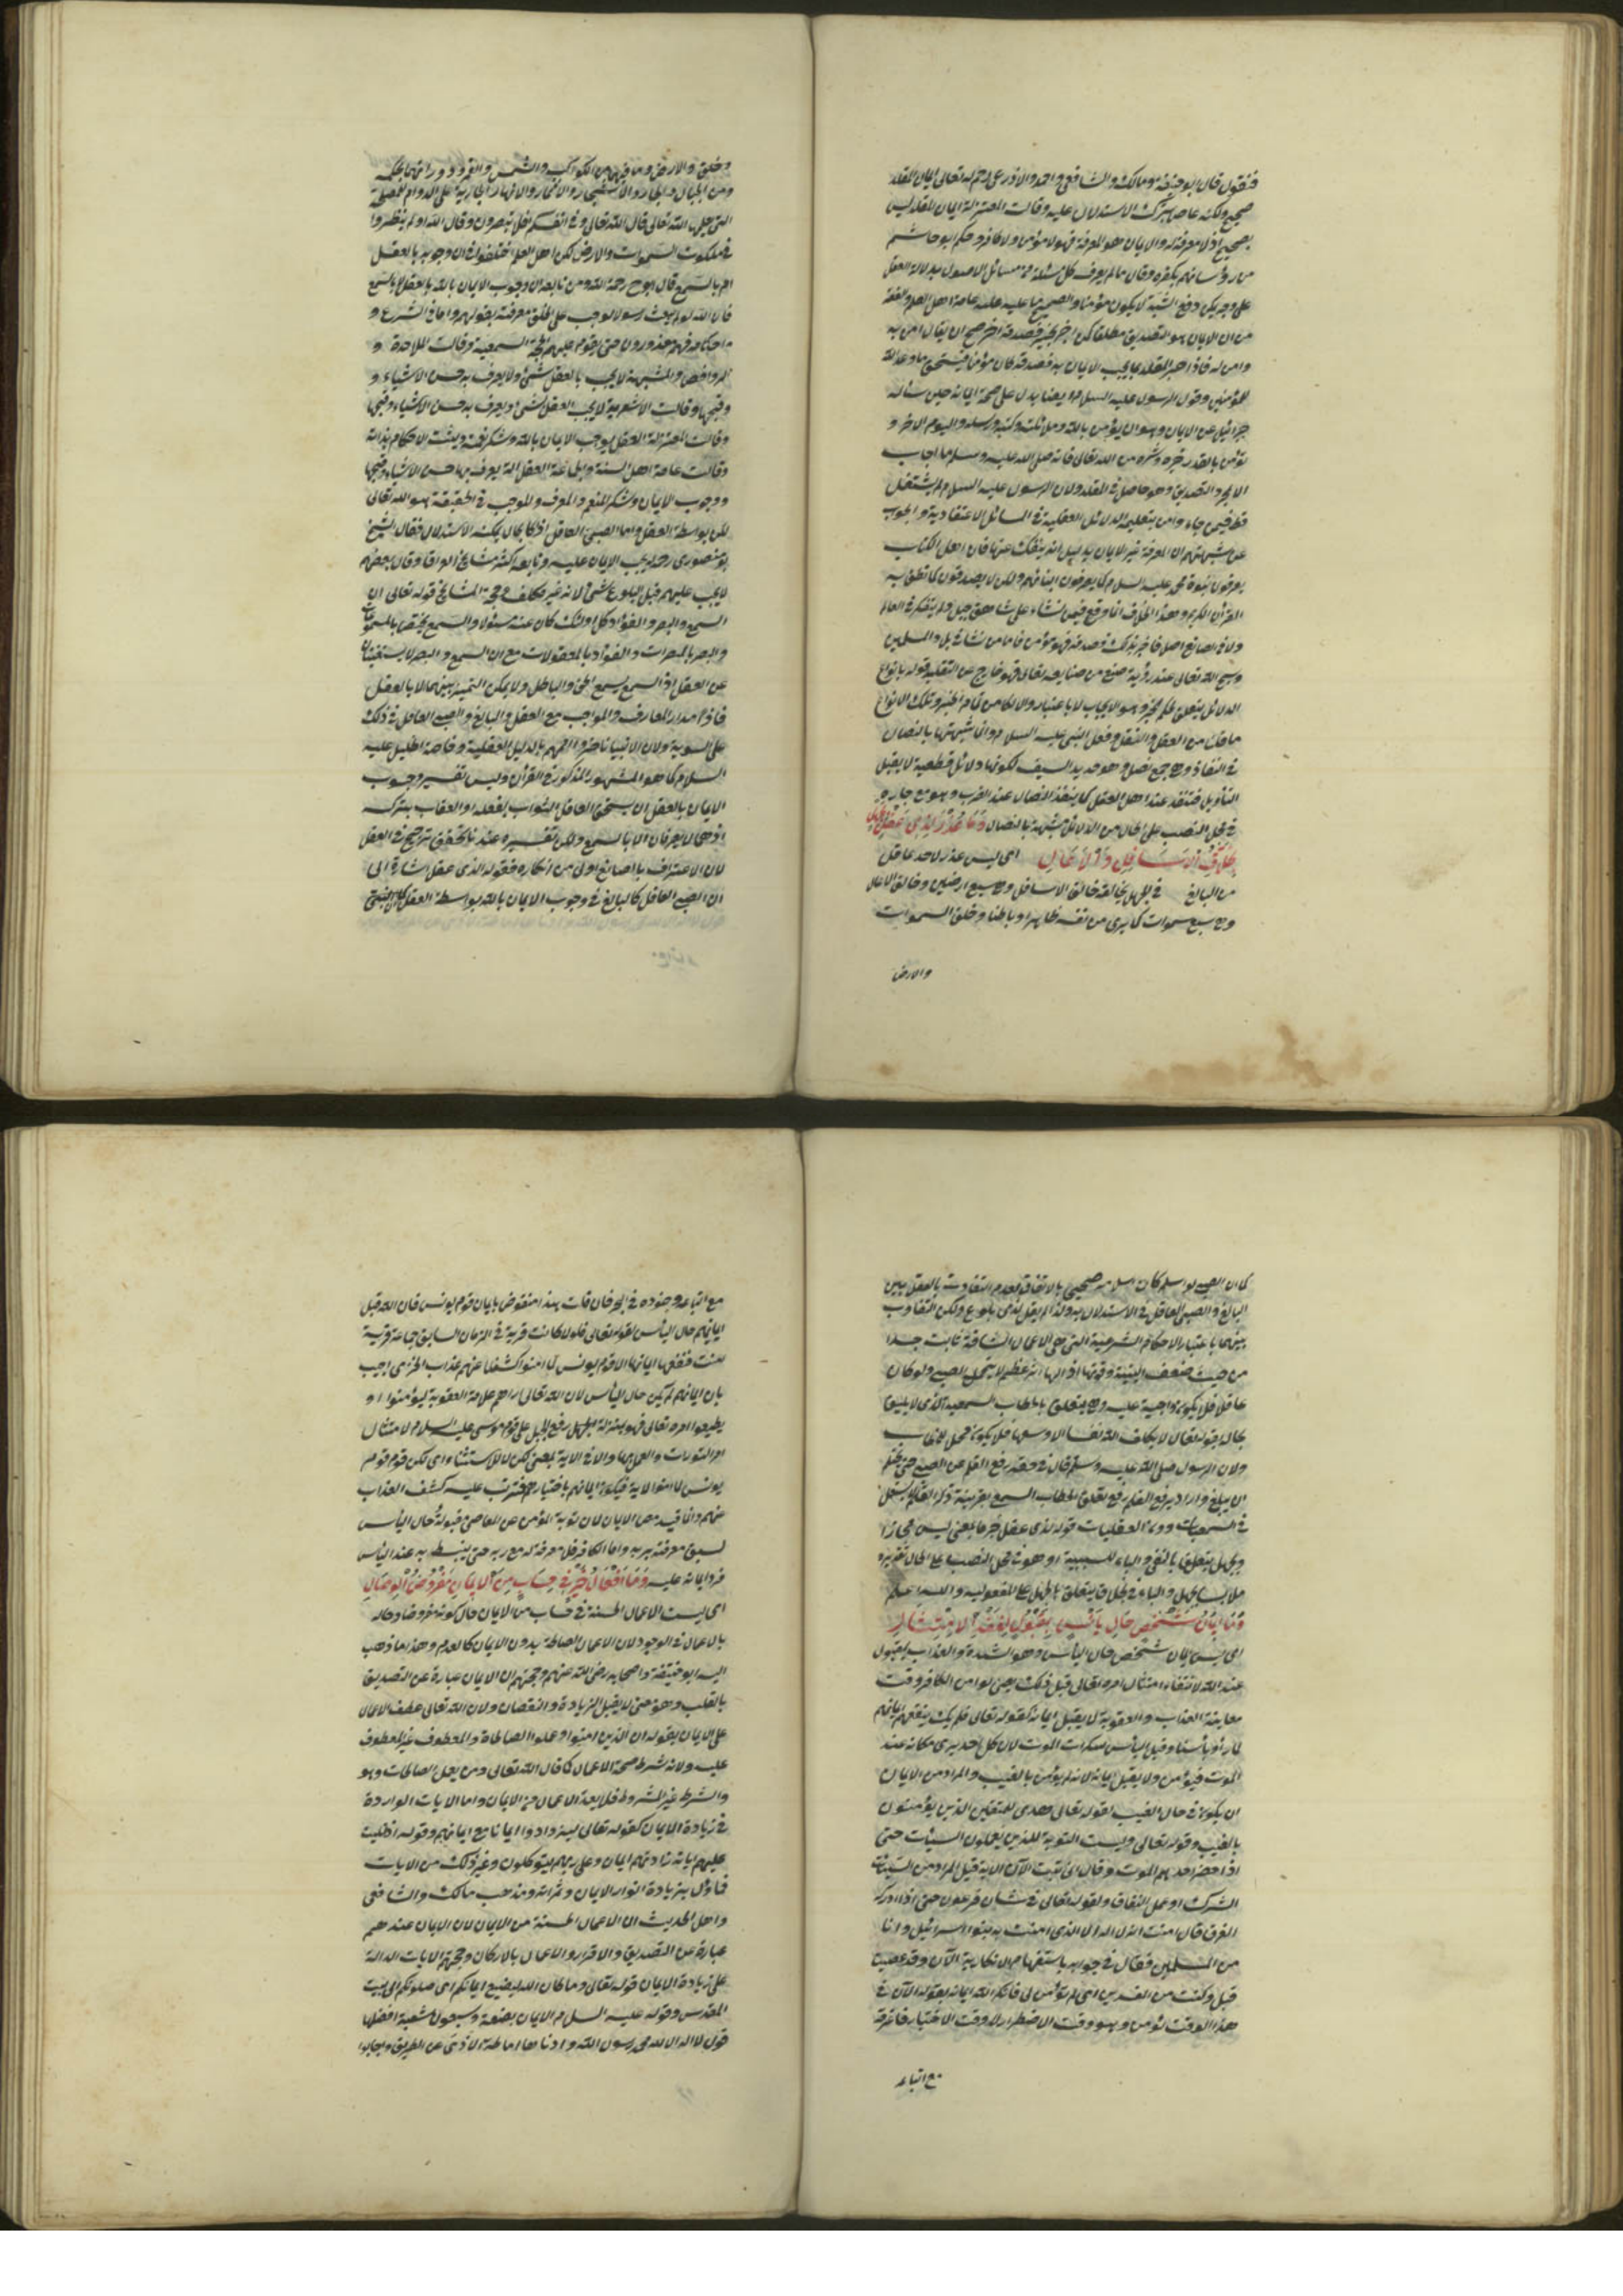 فنقول قال ابو حنيفة ومالك والشافعي واحمد والاوزرعى رحمهم الله تعالى ايمان المقلد
صحيح ولكنه عاص بترك الاستدلال عليه وقالت المعتزلة ايمان المقلد ليس
بصحيح اذ لا معرفة له والايمان هو المعرفة فهو لا مؤمن ولا كافر وحكم ابو هاشم
من رؤسائهم بكفره وقال ما لم يعرف كل مسئلة من مسائل الاصول بدلالة العقل
على وجه يمكن دفع الشبه لا يكون مؤمنا والصحيح ما عليه عامة اهل العلم والفقه
من ان الايمان هو التصديق مطلقا فمن اخبر بخبر فصدقه اخر صح ان يقال امن به
وامن له فاذا اخبر المقلد بما يجب الايمان به فصدقه كان مؤمنا فيستحق ما وعد الله
للمؤمنين وقول الرسول عليه السلام ايضا يدل على صحة ايمانه حين سأله
جبرائيل عن الايمان وهو ان يؤمن بالله وملائكته وكتبه ورسله واليوم الاخر و
تؤمن بالقدر خيره وشره من الله تعالى فانه صلى الله عليه وسلم ما اجاب
الا بمجرد التصديق وهو حاصل في المقلد ولان الرسول عليه السلام لم يشتغل
قط فيمن جاء وامن بتعليمه الدلائل العقلية في المسائل الاعتقادية والجواب
عن شبهتهم ان المعرفة غير الايمان بدليل انه ينفك عنها فان اهل الكتاب
يعرفون نبوة محمد عليه السلام كما يعرفون ابنائهم ولكن لا يصدقون كما نطق به
القرآن الكريم وهذا الخلاف انما وقع فيمن نشاء على شاهق جبل ولم يتفكر في العالم
ولا في الصانع اصلا فاخبر بذلك وصدقه فهو مؤمن فاما من نشا في بلاد المسلمين
وسبح الله تعالى عند رؤية صنع من صنايعه تعالى فهو خارج عن التقليد قوله بانواع
الدلائل يتعلق بحكم الخبر وهو الايجاب لا باعتبار والا لكان من تمام الخبر وتلك الانواع
ما قلت من العقل والنقل وفعل النبي عليه السلام وانما شبهتها بالنصال
في النفاذ وهو جمع نصل وهو حديد السيف لكونها دلائل قطعية لا يقبل
التأويل فتنفذ عند اهل العقل كما ينفذ النصال عند الضرب وهو مع جاره
في محل النصب على الحال من الدلائل مشبهة بالنصال وَمَا عُذْرٌ لِذِي عَقْلٍ بِجَهْلٍ
بِخَلاَّقِ الْاَسَافِلِ وَالْاَعَالِي اى ليس عذر لاحد عاقل
من البالغ في جهل بخالقه خالق الاسافل وهو سبع ارضين وخالق الاعالى
وهو سبع سموات كما يرى من نفسه ظاهرا وباطنا وخلق السموات
والارض
وخلق والارض وما فيهن من الكواكب والشمس والقمر ودورانهما بحكمه
ومن الجبال والبحار والاشجار والاثمار والانهار الجارية على الدوام للمصلحة
التي جلها الله تعالى قال الله تعالى وفي انفسكم افلا تبصرون وقال الله اولم ينظروا
في ملكوت السموات والارض لكن اهل العلم اختلفوا في ان وجوبه بالعقل
ام بالسمع قال ابو ح رحمه الله ومن تابعه ان وجوب الايمان بالله بالعقل لا بالسمع
فان الله لو لم يبعث رسولا لوجب على الخلق معرفته بعقولهم واما في الشرع و
احكامه فهم معذورون حتى يقوم عليهم الحجة السمعية وقالت الملاحدة و
الروافض والمشبهة لا يجب بالعقل شئ ولا يعرف به حسن الاشياء و
وقبحها وقالت الاشعرية لا يجب العقل شئ ويعرف به حسن الاشياء وقبحها
وقالت المعتزلة العقل يوجب الايمان بالله وشكر نعمته ويثبت الاحكام بذاته
وقالت عامة اهل السنة والجماعة العقل الة يعرف بها حسن الاشياء وقبحها
ووجوب الايمان وشكر المنعم والمعرف والموجب في الحقيقة هو الله تعالى
لكن بواسطة العقل واما الصبي العاقل اذا كان بحال يمكنه الاستدلال فقال الشيخ
ابو منصورى رحمه يجب الايمان عليه وتابعه اكثر مشايخ العراق وقال بعضهم
لا يجب عليهم قبل البلوغ شئ لانه غير مكلف وحجة المشايخ قوله تعالى ان
السمع والبصر والفؤاد كل اولئك كان عنه مسئولا والسمع يختص بالمسموعات
والبصر بالمبصرات والفؤاد بالمعقولات مع ان السمع والبصر لا يستغنيان
عن العقل اذ السمع يسمع الحق والباطل ولا يمكن التمييز بينهما الا بالعقل
فاذا مدار المعارف والمواجب مع العقل والبالغ والصبي العاقل في ذلك
على السوية ولان الانبيا ناظروا اممهم بالدليل العقلية وخاصة الخليل عليه
السلام كما هو المشهور المذكور في القرآن وليس تفسير وجوب
الايمان بالعقل ان يستحق العاقل الثواب بفعله او العقاب بتركه
اذ هما لا يعرفان الا بالسمع ولكن تفسيره عندنا تحقق ترجيح في العقل
لان الاعتراف بالصانع اولى من انكاره فقوله لذى عقل اشارة الى
ان الصبي العاقل كالبالغ في وجوب الايمان بالله بواسطة العقل
كما ان الصبي لو اسلم كان اسلامه صحيحى بالاتفاق لعدم التفاوت بالعقل بين
البالغ والصبي العاقل في الاستدلال به ولذا لم يقل لذى بلوغ ولكن التفاوت
بينهما باعتبار الاحكام الشرعية التي هي الاعمال الشاقة ثابت جدا
من حيث ضعف البنية وقوتها اذ لها اثر عظيم لا يتحمل الصبي ولو كان
عاقلا فلا يكون واجبة عليه وهو يتعلق بالخطاب السمعية الذى لا يليق
بحاله بقوله تعالى لا يكلف الله نفسا الا وسعها فلا يكون محل للخطاب
ولان الرسول صلى الله عليه وسلم قال في حقه رفع القلم عن الصبي حتى يحتلم
اى يبلغ واراد برفع القلم رفع تعلق الخطاب السمع بقرينة ذكر القلم
في السمعيات دون العقليات قوله لذى عقل خبر ما بمعنى ليس
وبجهل يتعلق بالنفي والباء للسببية او هو في محل النصب على الحال تقديره
ملابسا بجهل والباء في بخلاق يتعلق بالجهل على المفعولية والله اعلم
وَمَا اِيمَانُ شَخْصٍ حَالَ يَأْسٍ بِمَقْبُولٍ لِفَقْدِ الْاِمْتِثَالِ
اى ليس ايمان شخص حال اليأس وهو الشدة والعذاب بمقبول
عند الله لانتفاء امتثال امره تعالى قبل ذلك يعنى لو امن الكافر وقت
معاينة العذاب والعقوبة لا يقبل ايمانه لقوله تعالى فلم يك ينفعهم ايمانهم
لما رأو بأسنا وقيل اليأس سكرات الموت لان كل احد يرى مكانه عند
الموت فيؤمن ولا يقبل ايمانه لانه لم يؤمن بالغيب والمراد من الايمان
ان يكون في حال الغيب لقوله تعالى وهدى للمتقين الذين يؤمنون
بالغيب وقوله تعالى وليست التوبة للذين يعملون السيئات حتى
اذا حضر احدهم الموت وقال انى تبت الآن الاية قيل المراد من السيئات
الشرك او عمل النفاق ولقوله تعالى في شان فرعون حتى اذا ادركه
الغرق قال امنت انه لا اله الا الذى امنت به بنوا اسرائيل وانا
من المسلمين فقال في جوابه باستفهام الانكارية الآن وقد عصيت
قبل وكنت من المفسدين اى لم تؤمن لى فانكر الله ايمانه بقوله الآن في
هذا الوقت تؤمن وهو وقت الاضطرار لا وقت الاختيار فاغرقه
مع اتباعه
مع اتباعه وجنوده في البحر فان قلت هذا منقوض بايمان قوم يونس فان الله قبل
ايمانهم حال اليأس لقوله تعالى فلولا كانت قرية في الزمان السابق جماعة قرية
امنت فنفعها ايمانها الا قوم يونس لما امنوا كشفنا عنهم عذاب الخزى اجيب
بان ايمانهم لم يكن حال اليأس لان الله تعالى اراهم علامة العقوبة ليؤمنوا او
يطيعوا امره تعالى فهو بمنزلة رفع الجبل على قوم موسى عليه السلام لامتثال
امر التورات والعمل بها والا في الاية بمعنى لكن لا للاستثناء اى لكن قوم قوم
يونس لما امنوا الاية فيكون ايمانهم باختيارهم فترتب عليه كشف العذاب
عنهم وانما قيد مع الايمان لان توبة المؤمن عن المعاصى مقبولة حال اليأس
لسبق معرفته بربه واما الكافر فلا معرفة له مع ربه حتى ينبسط به عند اليأس
فرد ايمانه عليه وَمَا اَفْعَالُ خَيْرٍ فِي حِسَابٍ مِنَ الْاِيمَانِ مَفْرُوضُ الْوِصَالِ
اى ليست الاعمال الحسنة في حساب من الايمان حال كونه مفروضا وصاله
بالاعمال في الوجود لان الاعمال الصالحة بدون الايمان كالعدم وهذا ما ذهب
اليه ابو حنيفة واصحابه رضى الله عنهم وحجتهم ان الايمان عبارة عن التصديق
بالقلب وهو حتى لا يقبل الزيادة والنقصان ولان الله تعالى عطف الاعمال
على الايمان بقوله ان الذين امنوا وعملوا الصالحاة والمعطوف غير المعطوف
عليه ولانه شرط صحة الاعمال كما قال الله تعالى ومن يعمل الصالحات وهو
والشرط غير المشروط فلا يعد الاعمال من الايمان واما الايات الواردة
في زيادة الايمان كقوله تعالى ليزدادوا ايمانا مع ايمانهم وقوله اذا تليت
عليهم اياته زادتهم ايمان وعلى ربهم يتوكلون وغير ذلك من الايات
فماول بزيادة انوار الايمان وثمراته ومذهب مالك والشافعى
واهل الحديث ان الاعمال الحسنة من الايمان لان الايمان عندهم
عبارة عن التصديق والاقرار والاعمال بالاركان وحجتهم الايات الدالة
على زيادة الايمان قوله تعالى وما كان الله ليضيع ايمانكم اى صلوتكم الى بيت
المقدس وقوله عليه السلام الايمان بضعة وسبعون شعبة افضلها
قول لا اله الا الله محمد رسول الله وادناها اماطة الاذى عن الطريق ويجابوا